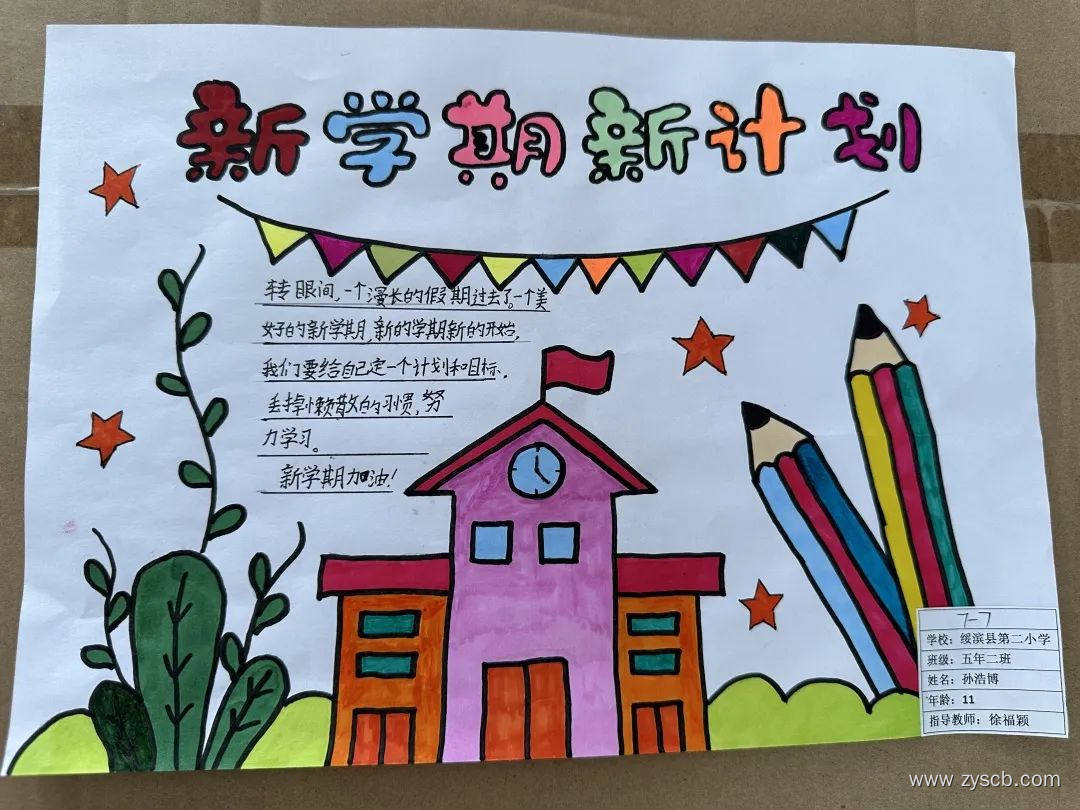 新学期新计划
转眼间,一个漫长的假期过去了。一个美
好的新学期,新的学期新的开始,
我们要给自己定一个计划和目标.
丢掉懒散的习惯,努
力学习。
新学期加油!
7-7
学校：绥滨县第二小学
班级：五年二班
姓名：孙浩博
年龄：11
指导教师：徐福颖
www.zyscb.com